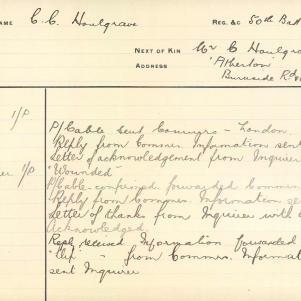 NAME C. C. Houlgrave REG. &c 50th Batt
NEXT OF KIN Mr C Houlgra
ADDRESS "Atherton"
Burnside Rd
1/P.
P/Cable sent Comnrs - London.
Reply from Comnr. Information sent
Letter of acknowledgement from Inquirer
er 1/P "Wounded"
P/Cable confirmed forwarded Commr
Reply from Commr. Information se
Letter of thanks from Inquirer with
Acknowledged.
Reply received Information forwarded
" - from Commr. Informat
sent Inquirer